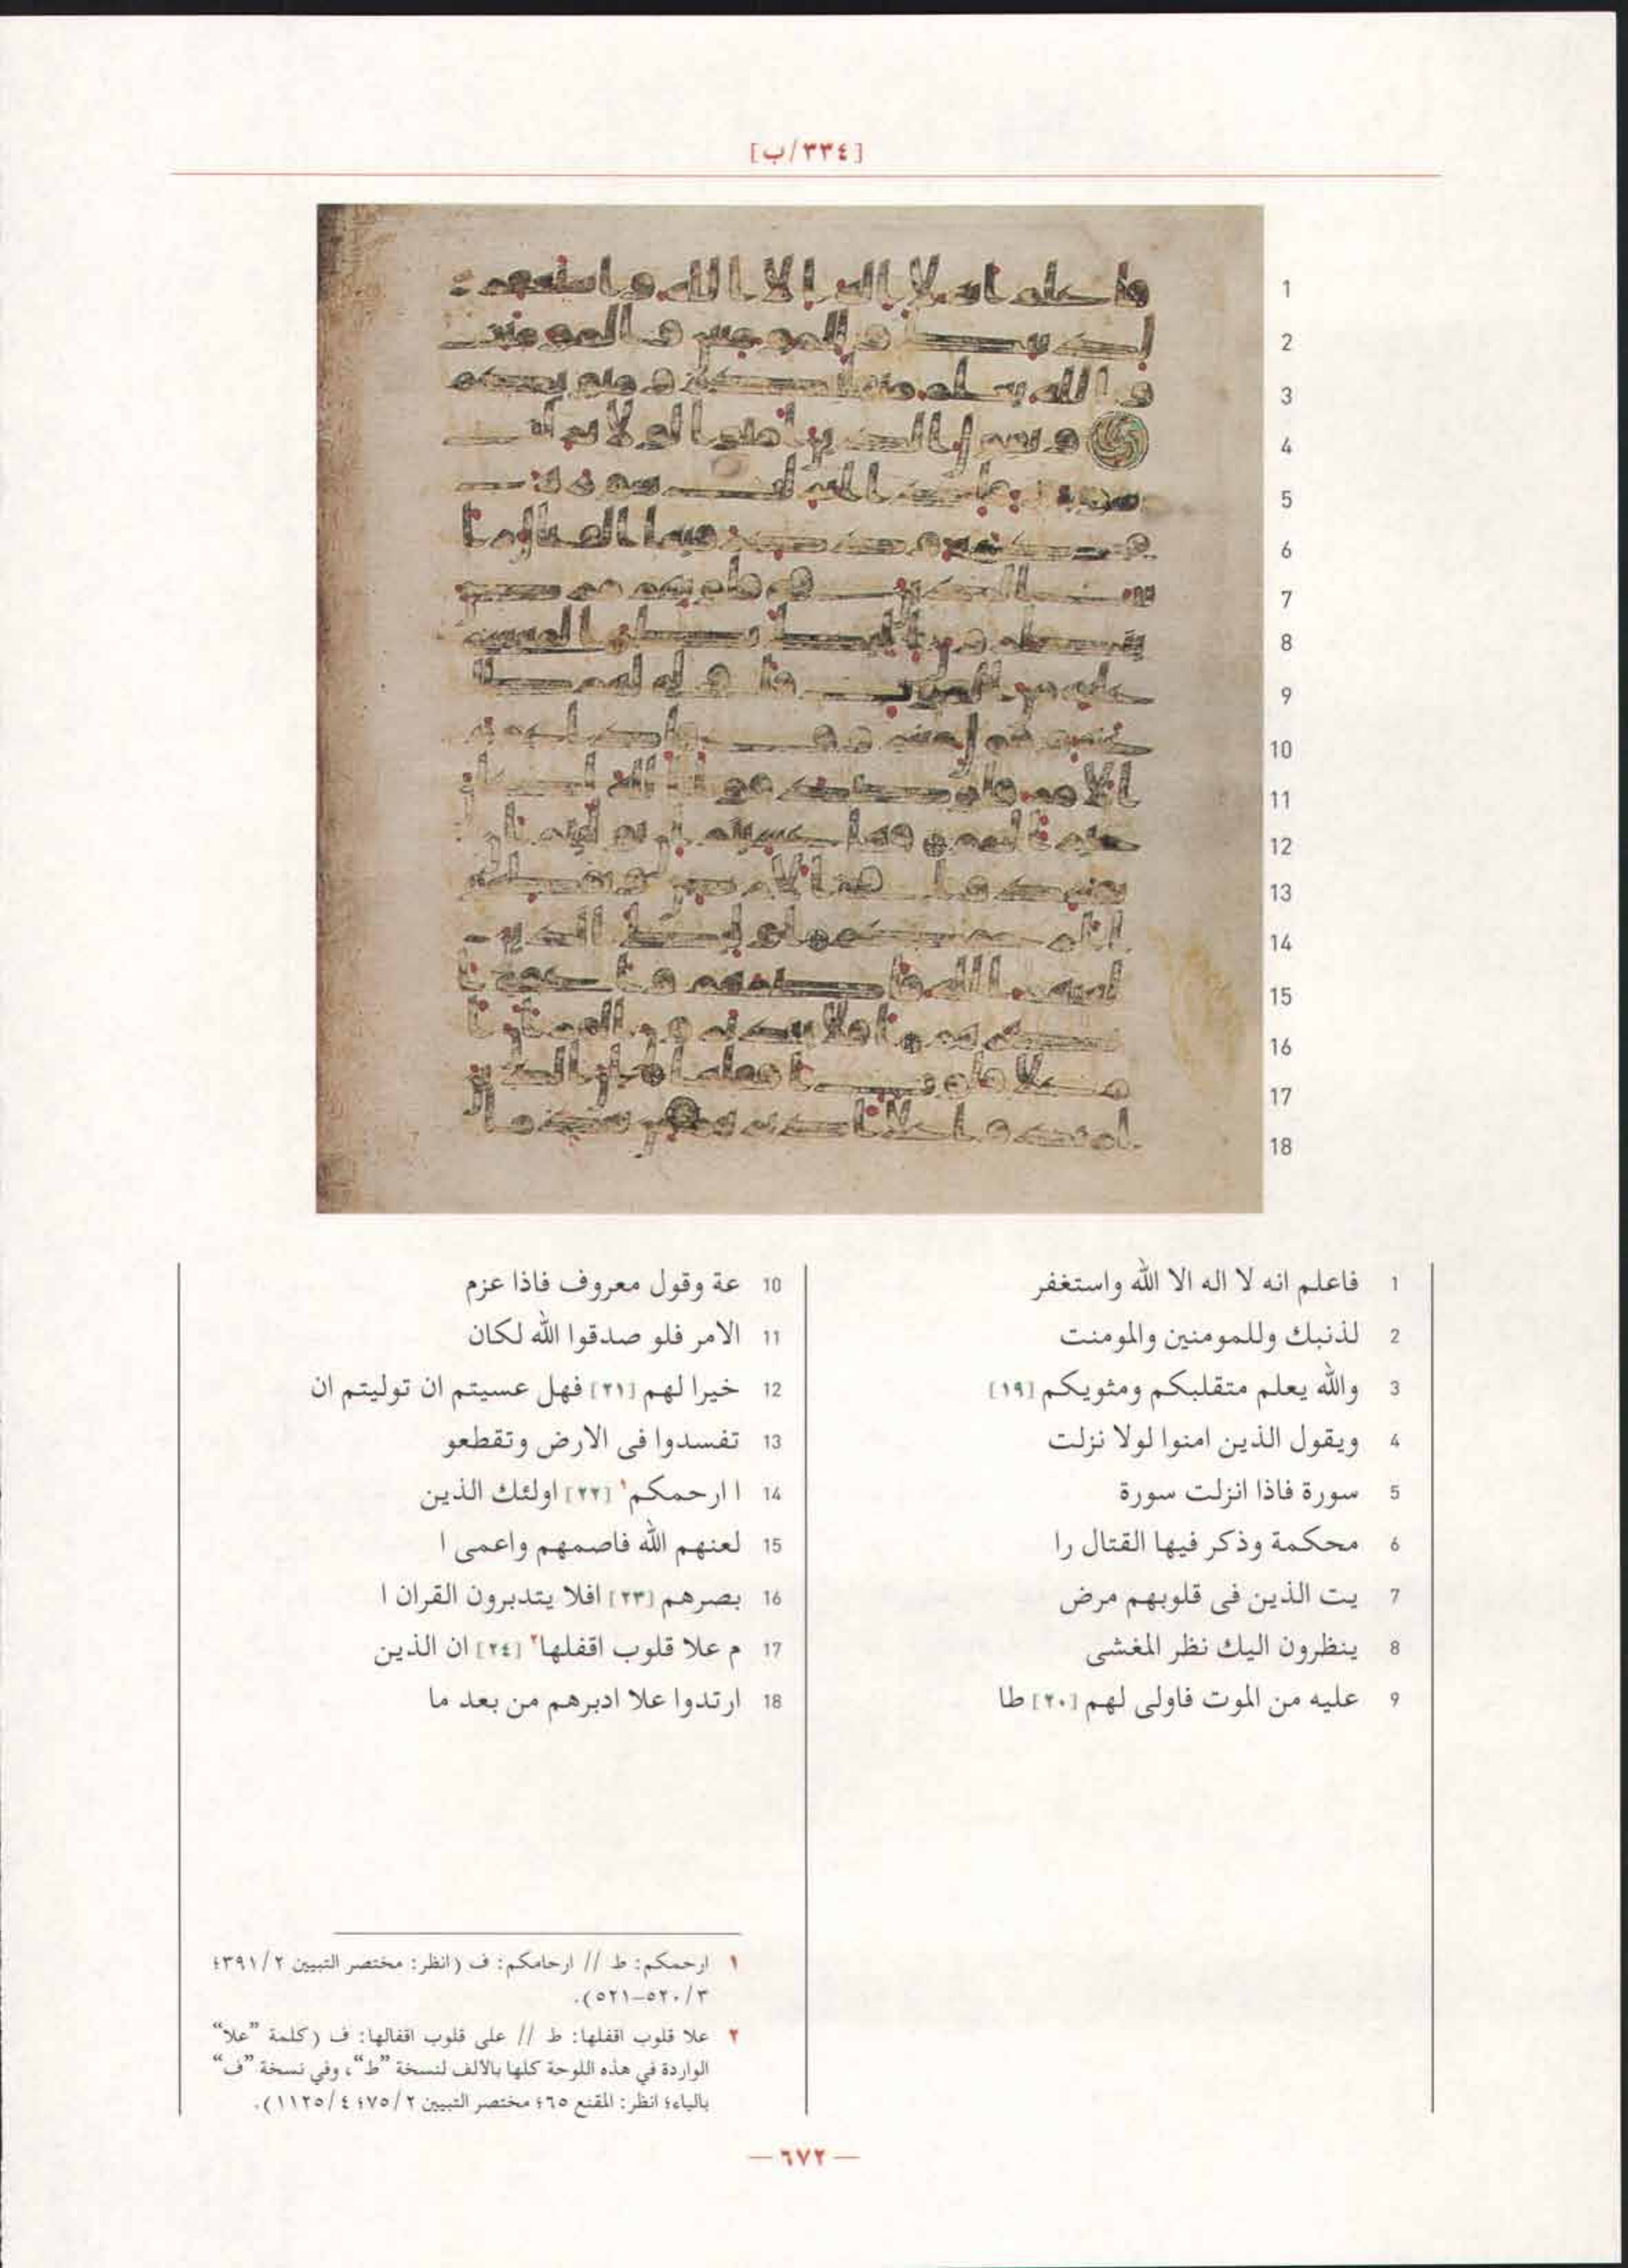 [٣٣٤/ب]
1 فاعلم انه لا اله الا الله واستغفر
2 لذنبك وللمومنين والمومنت
3 والله يعلم متقلبكم ومثويكم [١٩]
4 ويقول الذين امنوا لولا نزلت
5 سورة فاذا انزلت سورة
6 محكمة وذكر فيها القتال را
7 يت الذين فى قلوبهم مرض
8 ينظرون اليك نظر المغشى
9 عليه من الموت فاولى لهم [٢٠] طا
10 عة وقول معروف فاذا عزم
11 الامر فلو صدقوا الله لكان
12 خيرا لهم [٢١] فهل عسيتم ان توليتم ان
13 تفسدوا فى الارض وتقطعو
14 ا ارحمكم١ [٢٢] اولئك الذين
15 لعنهم الله فاصمهم واعمى ا
16 بصرهم [٢٣] افلا يتدبرون القران ا
17 م علا قلوب اقفلها٢ [٢٤] ان الذين
18 ارتدوا علا ادبرهم من بعد ما
١ ارحمكم: ط // ارحامكم: ف (انظر: مختصر التبيين ٣٩١/٢؛
٥٢٠/٣–٥٢١).
٢ علا قلوب اقفلها: ط // على قلوب اقفالها: ف (كلمة "علا"
الواردة في هذه اللوحة كلها بالألف لنسخة "ط"، وفي نسخة "ف"
بالياء؛ انظر: المقنع ٦٥؛ مختصر التبيين ٧٥/٢؛ ١١٢٥/٤).
— ٦٧٢ —